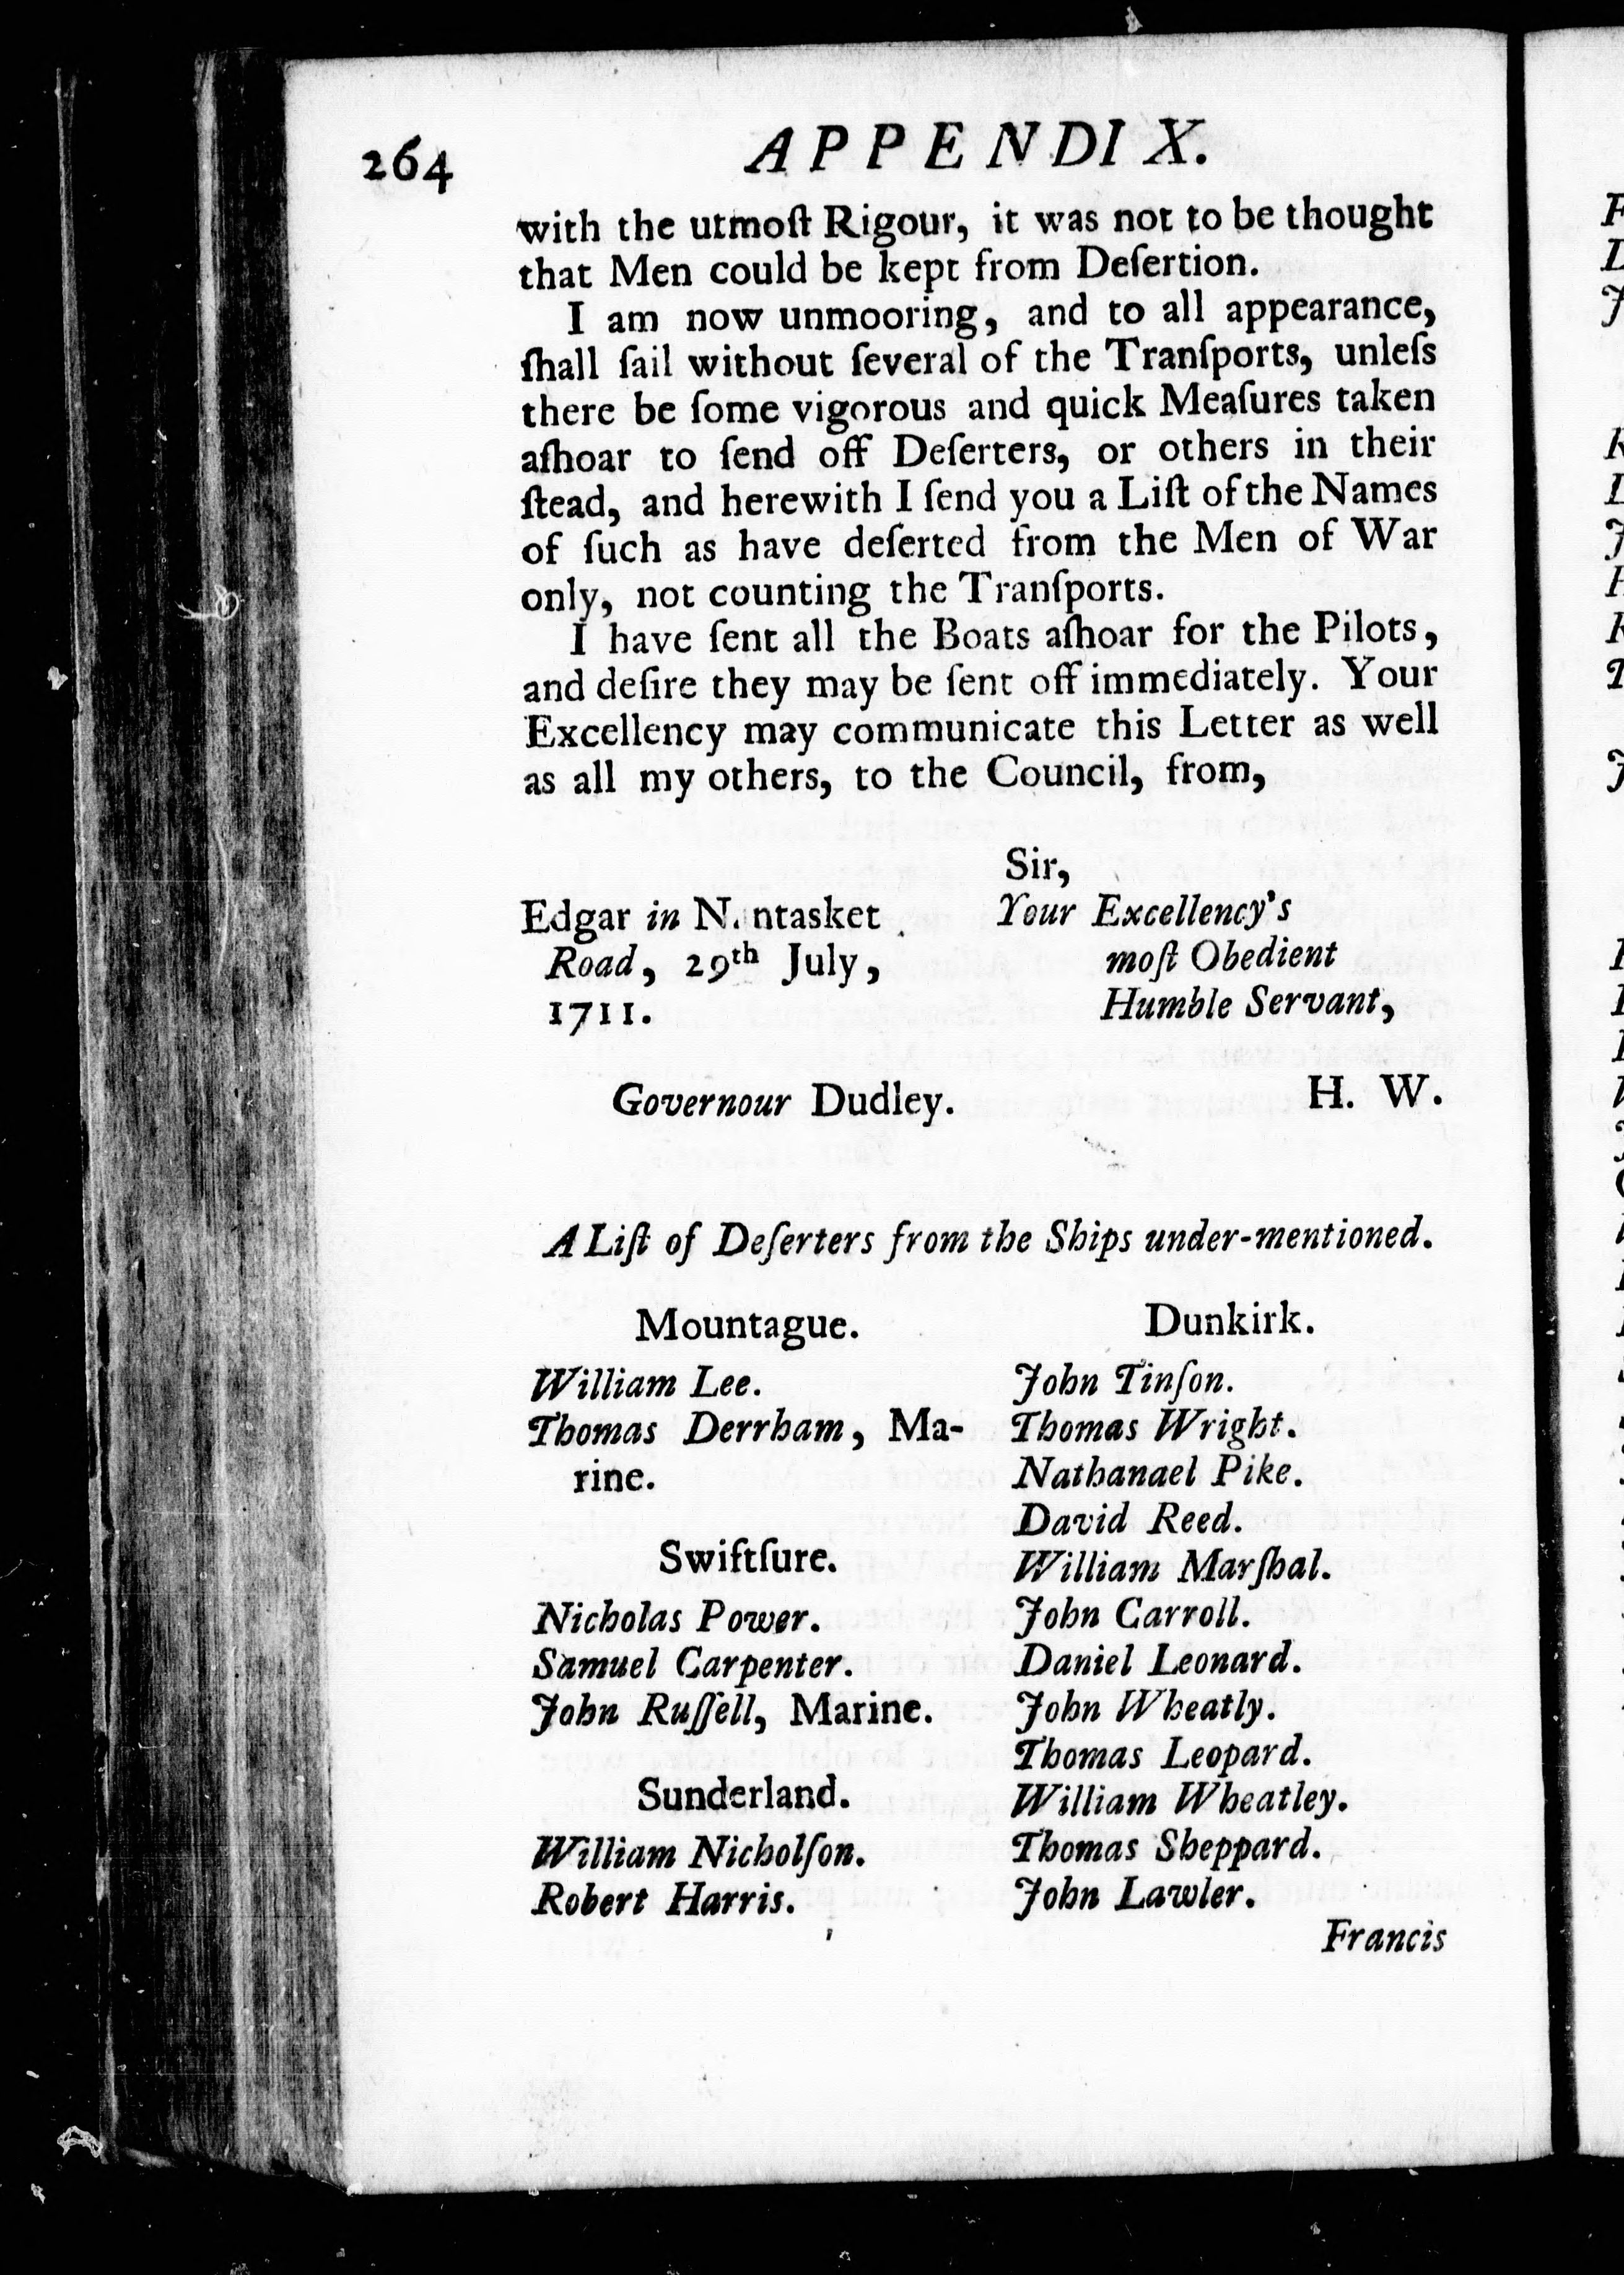 264
APPENDIX.
with the utmoſt Rigour, it was not to be thought
that Men could be kept from Deſertion.
I am now unmooring, and to all appearance,
ſhall ſail without ſeveral of the Tranſports, unleſs
there be ſome vigorous and quick Meaſures taken
aſhoar to ſend off Deſerters, or others in their
ſtead, and herewith I ſend you a Liſt of the Names
of ſuch as have deſerted from the Men of War
only, not counting the Tranſports.
I have ſent all the Boats aſhoar for the Pilots,
and deſire they may be ſent off immediately. Your
Excellency may communicate this Letter as well
as all my others, to the Council, from,
Sir,
Your Excellency's
moſt Obedient
Humble Servant,
H. W.
Edgar in Nantasket
Road, 29th July,
1711.
Governour Dudley.
A Liſt of Deſerters from the Ships under-mentioned.
Mountague.
William Lee.
Thomas Derrham, Ma-
rine.
Swiftſure.
Nicholas Power.
Samuel Carpenter.
John Ruſſell, Marine.
Sunderland.
William Nicholſon.
Robert Harris.
Dunkirk.
John Tinſon.
Thomas Wright.
Nathanael Pike.
David Reed.
William Marſhal.
John Carroll.
Daniel Leonard.
John Wheatly.
Thomas Leopard.
William Wheatley.
Thomas Sheppard.
John Lawler.
Francis